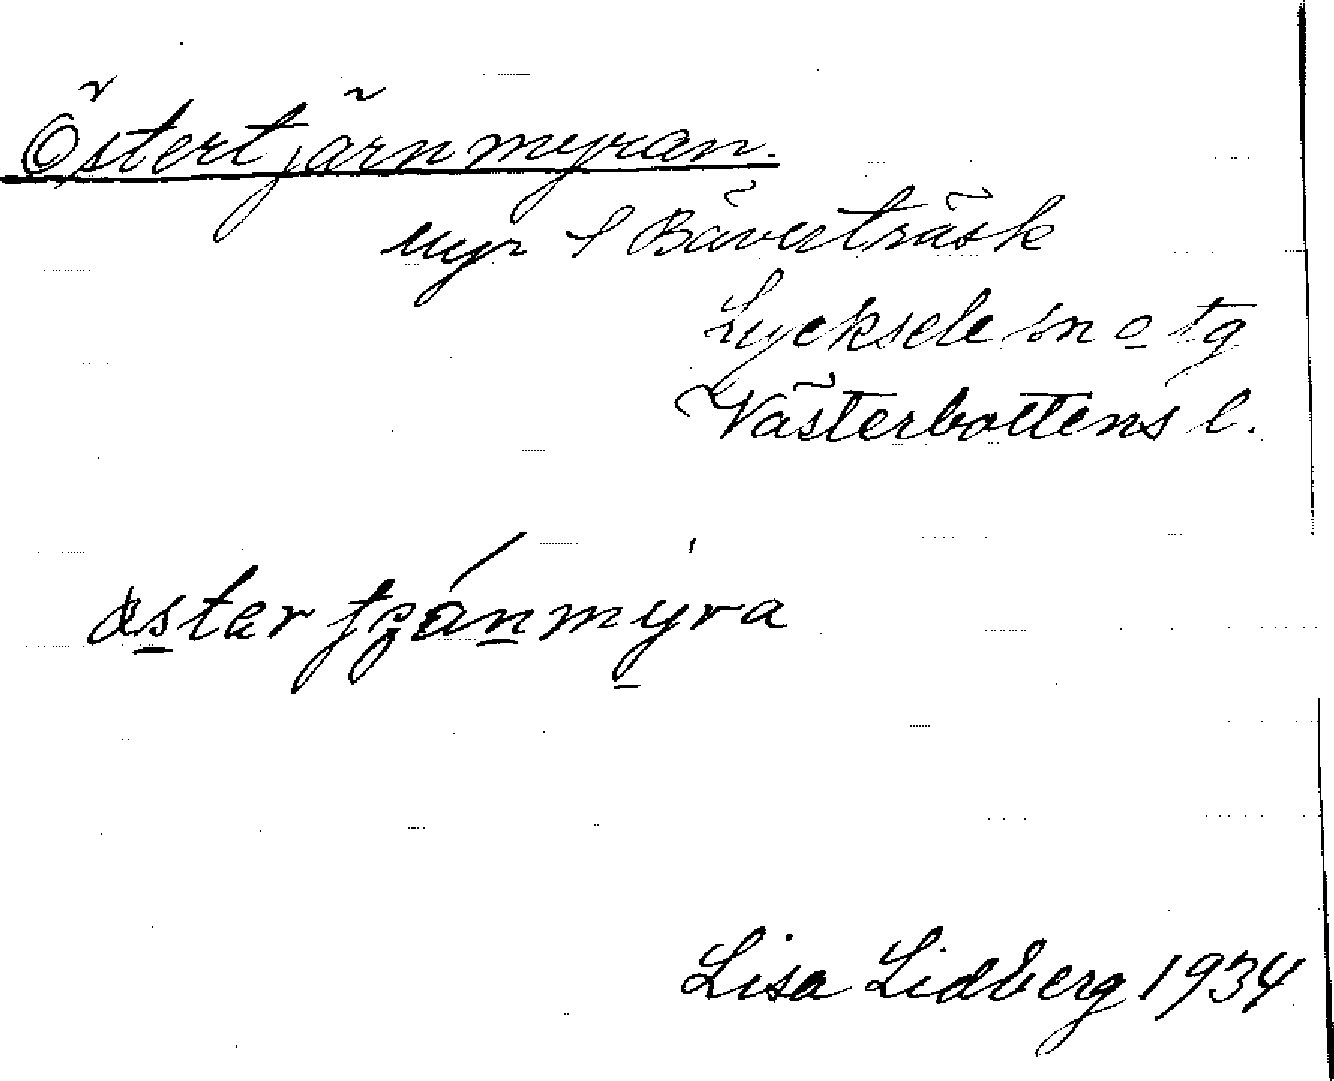 Östertjärnmyran.
myr i Bäverträsk
Lycksele sn o tg
Västerbottens l.
Lisa Lidberg 1934